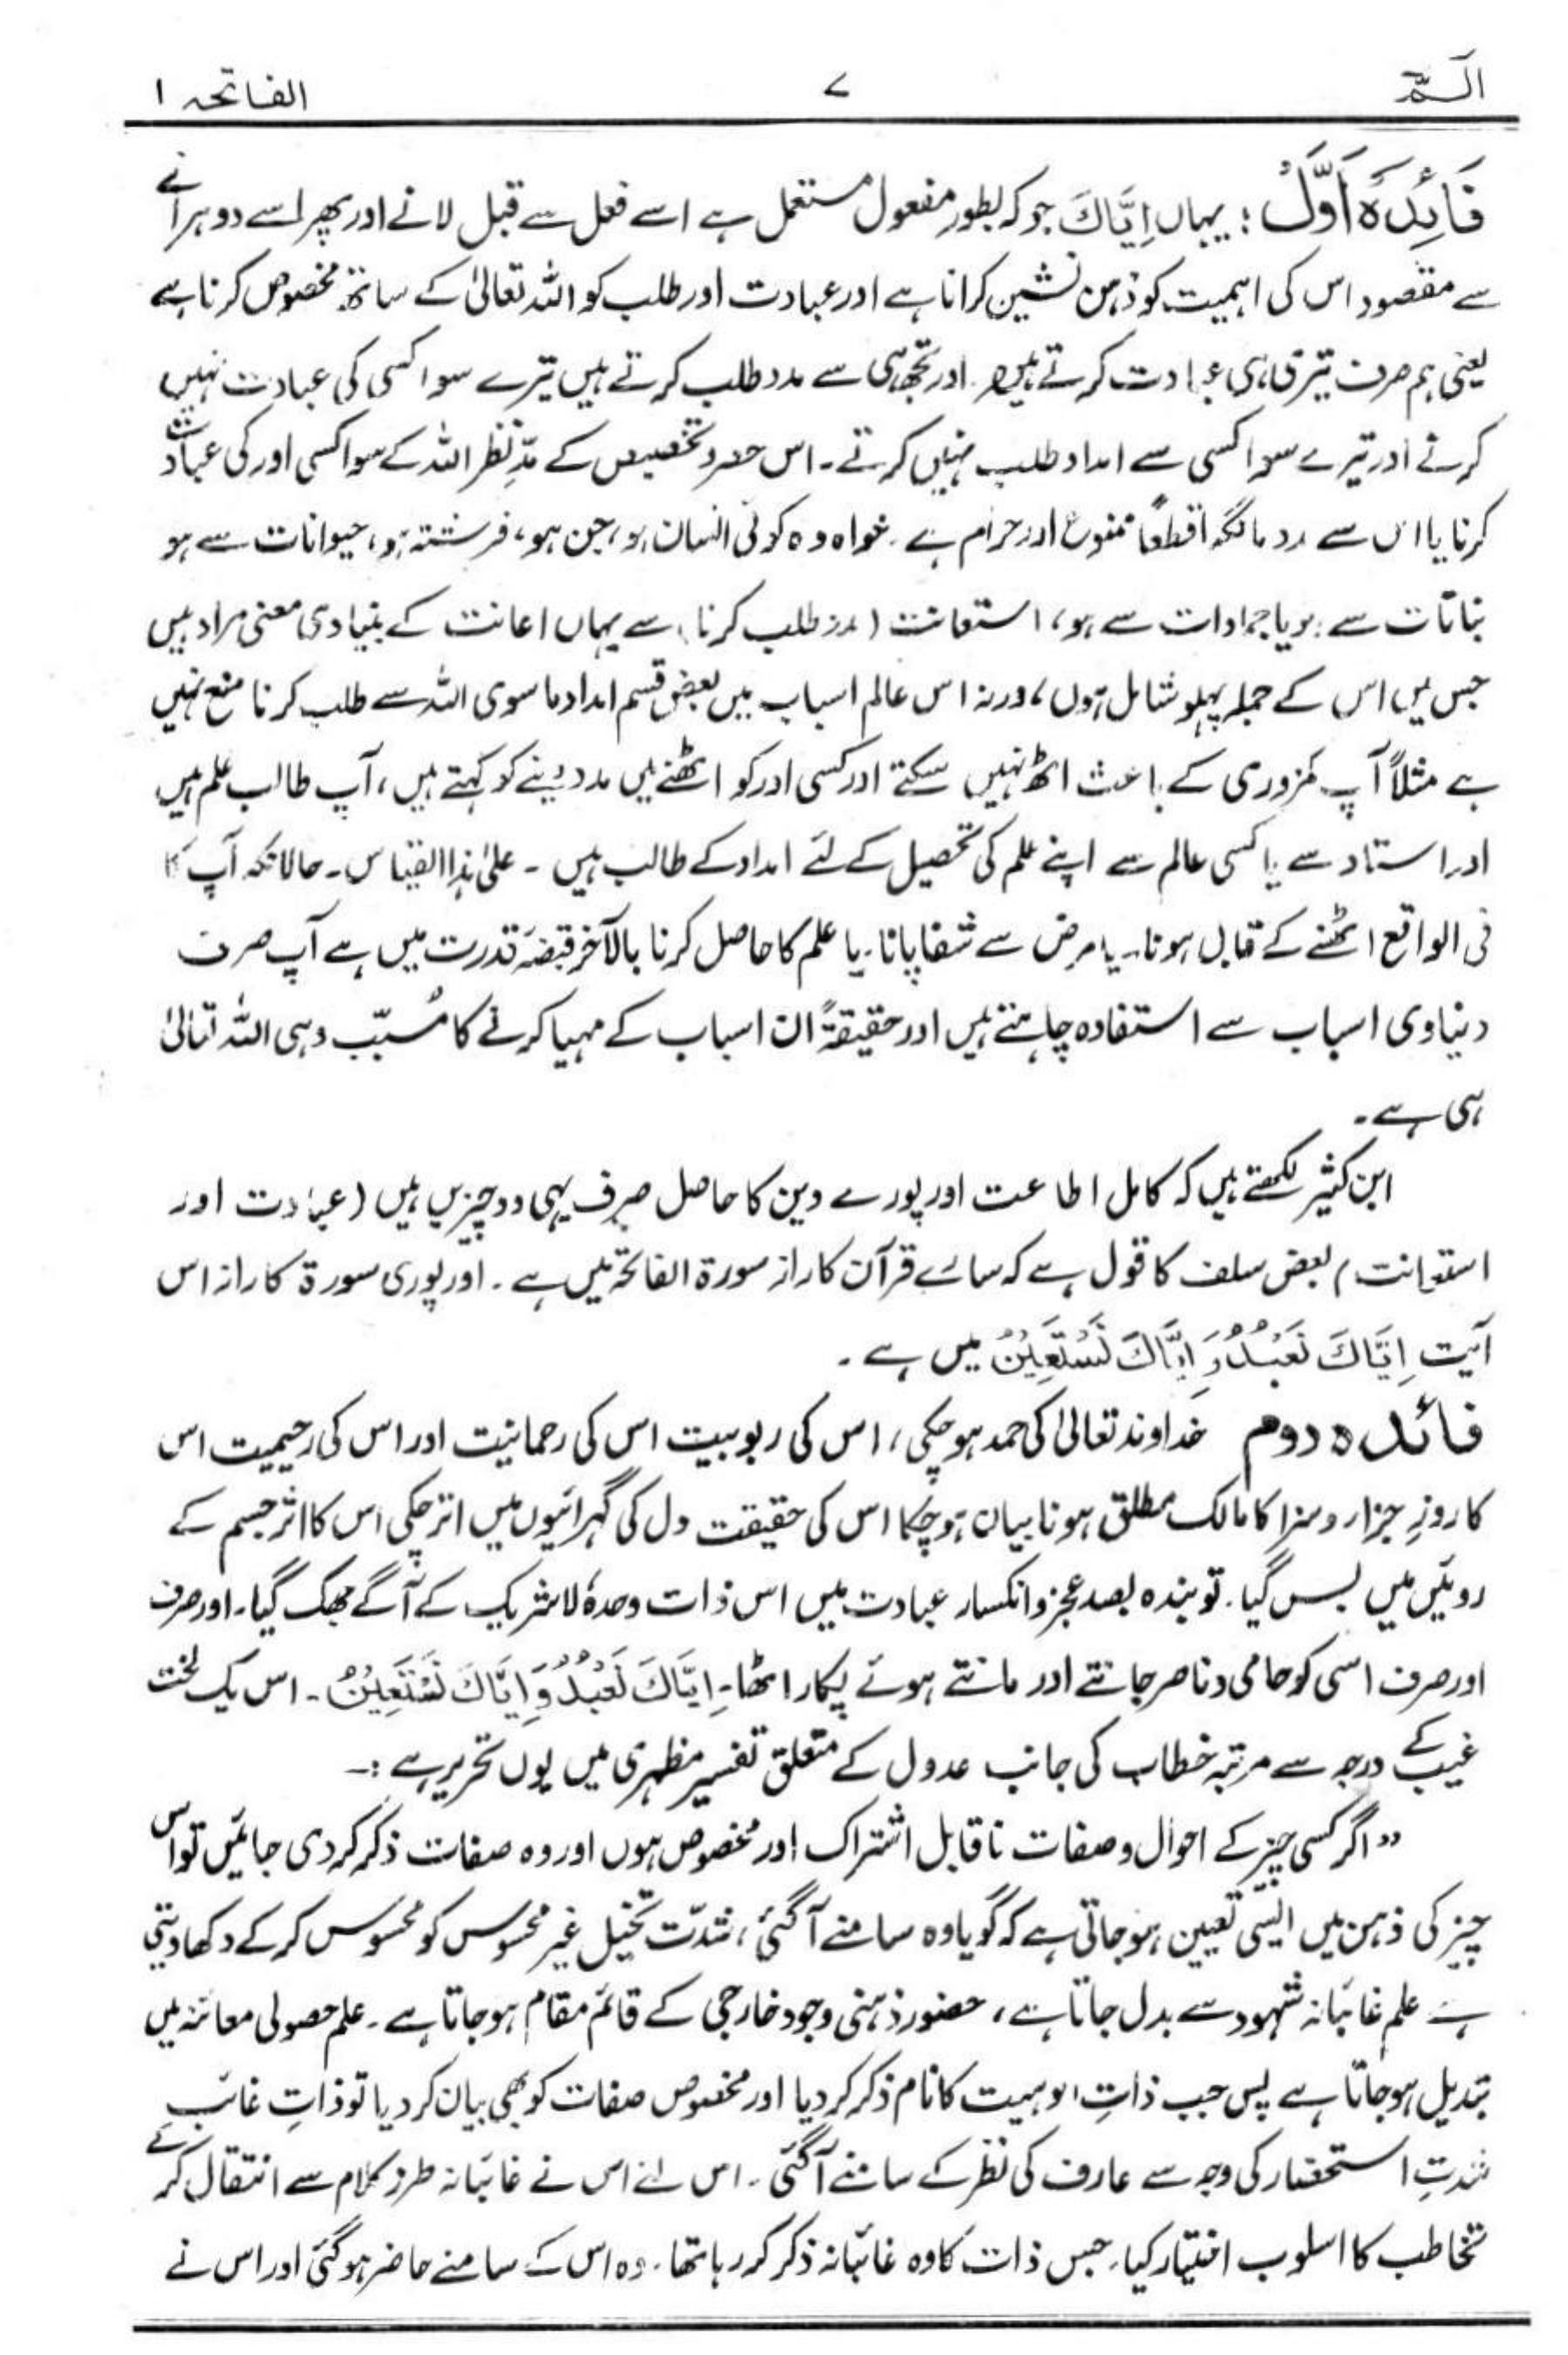 الٓـمّٓ ۷ الفاتحہ ۱
فَائِدَہ اَوَّلُ : یہاں اِیَّاکَ جو کہ بطور مفعول مستعمل ہے اسے فعل سے قبل لانے اور پھر اسے دوہرانے
سے مقصود اس کی اہمیت کو ذہن نشین کرانا ہے اور عبادت اور طلب کو اللہ تعالیٰ کے ساتھ مخصوص کرنا ہے
یعنی ہم صرف تیری ہی عبادت کرتے ہیں اور تجھ ہی سے مدد طلب کرتے ہیں تیرے سوا کسی کی عبادت نہیں
کرتے اور تیرے سوا کسی سے امداد طلب نہیں کرتے۔ اس حصر و تخصیص کے مدِّنظر اللہ کے سوا کسی اور کی عبادت
کرنا یا اس سے مدد مانگنا قطعاً ممنوع اور حرام ہے۔ خواہ وہ کوئی انسان ہو، جن ہو، فرشتہ ہو، حیوانات سے ہو
نباتات سے ہو یا جمادات سے ہو، استعانت (مدد طلب کرنا) سے یہاں اعانت کے بنیادی معنی مراد ہیں
جس میں اس کے جملہ پہلو شامل ہوں، ورنہ اس عالم اسباب میں بعض قسم امداد ما سوی اللہ سے طلب کرنا منع نہیں
ہے مثلاً آپ کمزوری کے باعث اٹھ نہیں سکتے اور کسی اور کو اٹھنے میں مدد دینے کو کہتے ہیں، آپ طالب علم ہیں
اور استاد سے یا کسی عالم سے اپنے علم کی تحصیل کے لئے امداد کے طالب ہیں ۔ علیٰ ہذا القیاس۔ حالانکہ آپ کا
فی الواقع اٹھنے کے قابل ہونا۔ یا مرض سے شفا پانا۔ یا علم کا حاصل کرنا بالآخر قبضہ قدرت میں ہے آپ صرف
دنیاوی اسباب سے استفادہ چاہتے ہیں اور حقیقۃً ان اسباب کے مہیا کرنے کا مُسبّب وہی اللہ تعالیٰ
ہی ہے۔
ابن کثیر لکھتے ہیں کہ کامل اطاعت اور پورے دین کا حاصل صرف یہی دو چیزیں ہیں (عبادت اور
استعانت) بعض سلف کا قول ہے کہ سارے قرآن کا راز سورۃ الفاتحہ میں ہے۔ اور پوری سورۃ کا راز اس
آیت اِیَّاکَ نَعْبُدُ وَ اِیَّاکَ نَسْتَعِیْنُ میں ہے ۔
فائدہ دوم خداوند تعالیٰ کی حمد ہو چکی، اس کی ربوبیت اس کی رحمانیت اور اس کی رحیمیت اس
کا روزِ جزار و سزا کا مالک مطلق ہونا بیان ہو چکا اس کی حقیقت دل کی گہرائیوں میں اتر چکی اس کا اثر جسم کے
روئیں میں بس گیا۔ تو بندہ بصد عجز و انکسار عبادت میں اس ذات وحدہٗ لاشریک کے آگے جھک گیا۔ اور صرف
اور صرف اسی کو حامی و ناصر جانتے اور مانتے ہوئے پکار اٹھا۔ اِیَّاکَ نَعْبُدُ وَ اِیَّاکَ نَسْتَعِیْنُ ۔ اس یک لخت
غیب کے درجہ سے مرتبہ خطاب کی جانب عدول کے متعلق تفسیر مظہری میں یوں تحریر ہے :۔
”اگر کسی چیز کے احوال و صفات ناقابل اشتراک اور مخصوص ہوں اور وہ صفات ذکر کر دی جائیں تو اس
چیز کی ذہن میں ایسی تعیین ہو جاتی ہے کہ گویا وہ سامنے آ گئی، شدّت تخیل غیر محسوس کو محسوس کر کے دکھا دیتی
ہے علم غائبانہ شہود سے بدل جاتا ہے، حضور ذہنی وجود خارجی کے قائم مقام ہو جاتا ہے۔ علم حصولی معائنہ میں
تبدیل ہو جاتا ہے پس جب ذاتِ الوہیت کا نام ذکر کر دیا اور مخصوص صفات کو بھی بیان کر دیا تو ذاتِ غائب
شدتِ استحضار کی وجہ سے عارف کی نظر کے سامنے آ گئی۔ اس لئے اس نے غائبانہ طرز کلام سے انتقال کر کے
تخاطب کا اسلوب اختیار کیا۔ جس ذات کا وہ غائبانہ ذکر کر رہا تھا۔ وہ اس کے سامنے حاضر ہو گئی اور اس نے